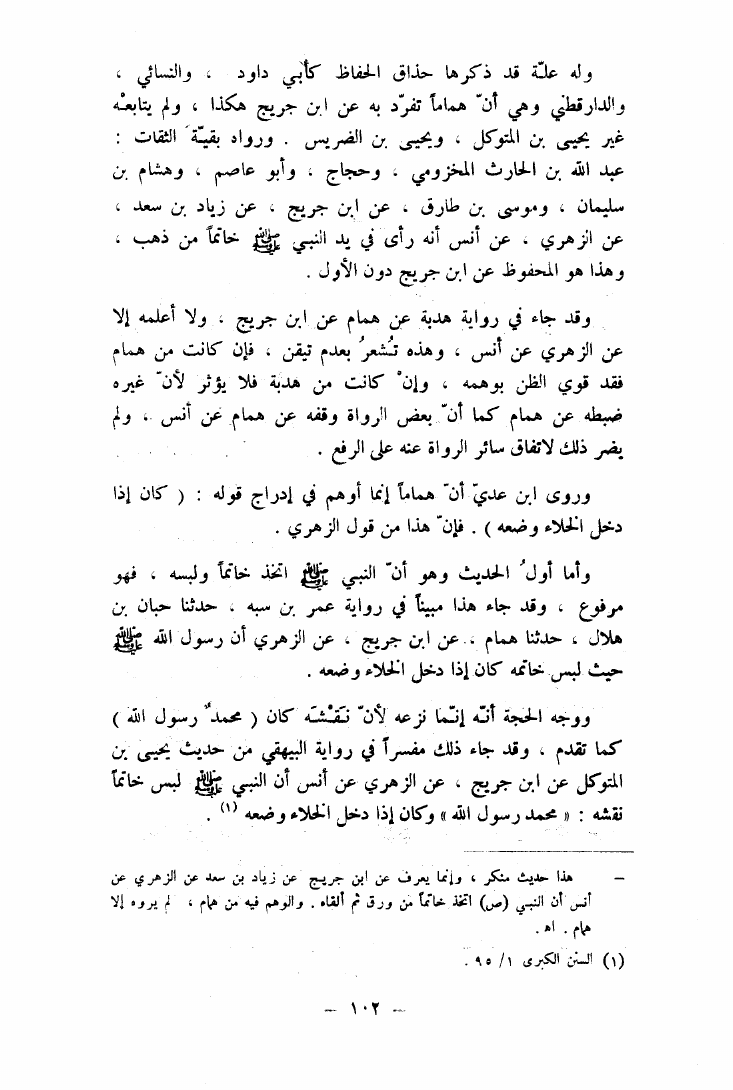 وله علّة قد ذكرها حذاق الحفاظ كأبي داود ، والنسائي ،
والدارقطني وهي أنّ هماماً تفرّد به عن ابن جريج هكذا ، ولم يتابعْه
غير يحيى بن المتوكل ، ويحيى بن الضريس . ورواه بقيّة الثقات :
عبد الله بن الحارث المخزومي ، وحجاج ، وأبو عاصم ، وهشام بن
سليمان ، وموسى بن طارق ، عن ابن جريج ، عن زياد بن سعد ،
عن الزهري ، عن أنس أنه رأى في يد النبي ﷺ خاتماً من ذهب ،
وهذا هو المحفوظ عن ابن جريج دون الأول .
وقد جاء في رواية هدبة عن همام عن ابن جريج ، ولا أعلمه إلا
عن الزهري عن أنس ، وهذه تُشعرُ بعدم تيقن ، فإن كانت من همام
فقد قوي الظن بوهمه ، وإنْ كانت من هدبة فلا يؤثر لأنّ غيره
ضبطه عن همام كما أنّ بعض الرواة وقفه عن همام عن أنس ، ولم
يضر ذلك لاتفاق سائر الرواة عنه على الرفع .
وروى ابن عديّ أنّ هماماً إنما أوهم في إدراج قوله : ( كان إذا
دخل الخلاء وضعه ) . فإنّ هذا من قول الزهري .
وأما أولُ الحديث وهو أنّ النبي ﷺ اتخذ خاتماً ولبسه ، فهو
مرفوع ، وقد جاء هذا مبيناً في رواية عمر بن سبه ، حدثنا حبان بن
هلال ، حدثنا همام ، عن ابن جريج ، عن الزهري أن رسول الله ﷺ
حيث لبس خاتمه كان إذا دخل الخلاء وضعه .
ووجه الحجة أنّه إنّما نزعه لأنّ نَقْشَه كان ( محمدٌ رسول الله )
كما تقدم ، وقد جاء ذلك مفسراً في رواية البيهقي من حديث يحيى بن
المتوكل عن ابن جريج ، عن الزهري عن أنس أن النبي ﷺ لبس خاتماً
نقشه : « محمد رسول الله » وكان إذا دخل الخلاء وضعه (١) .
– هذا حديث منكر ، وإنما يعرف عن ابن جريج عن زياد بن سعد عن الزهري عن
أنس أن النبي (ص) اتخذ خاتماً من ورق ثم ألقاه . والوهم فيه من همام ، لم يروه إلا
همام . اه .
(١) السنن الكبرى ١/ ٩٥ .
– ١٠٢ –